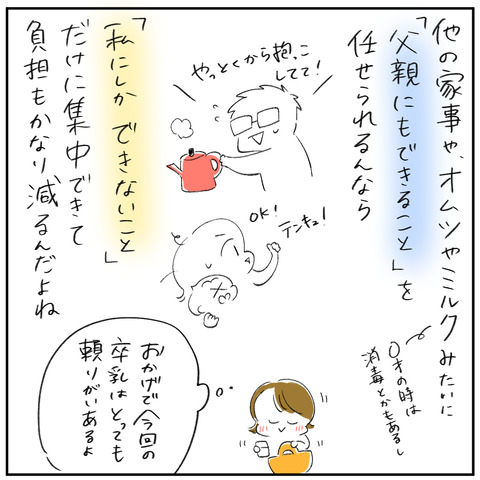 他の家事や、オムツやミルクみたいに
「父親にもできること」を
任せられるんなら
やっとくから抱っこ
してて！
「私にしかできないこと」
だけに集中できて
負担もかなり減るんだよね
OK!
テンキュ！
0才の時は
消毒とかもあるし
おかげで今回の
卒乳はとっても
頼りがいあるよ